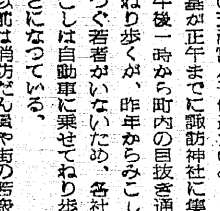 基が正午までに諏訪神社に集
午後一時から町内の目抜き通
ねり歩くが、昨年からみこし
つぐ若者がいないため、各社
こしは自動車に乗せてねり歩
とになつている。
以前は消防だん員や街の若衆